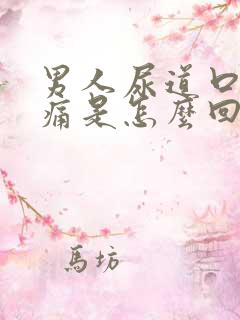 男人尿道口
痛是怎麼回
馬坊